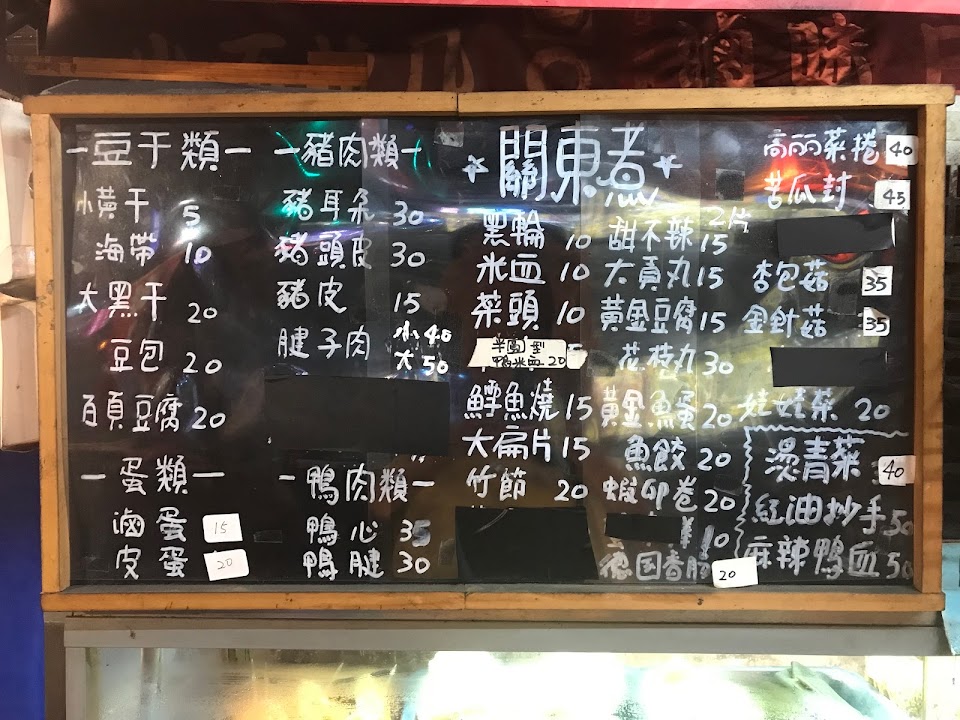 一豆干類一
小黃干 5
海帶 10
大黑干 20
豆包 20
百頁豆腐 20
一蛋類一
滷蛋 15
皮蛋 20
一豬肉類一
豬耳朵 30
豬頭皮 30
豬皮 15
腱子肉 小40
大50
-鴨肉類一
鴨心 35
鴨腱 30
☆關東煮☆
黑輪 10
米血 10
菜頭 10
半圓型
鴨米血20
鱘魚燒 15
大扁片 15
竹節 20
甜不辣 2片15
大貢丸 15
黃金豆腐 15
花枝丸 30
黃金魚蛋 20
魚餃 20
蝦卵卷 20
10
德国香腸 20
高丽菜捲 40
苦瓜封 45
杏包菇 35
金針菇 35
娃娃菜 20
燙青菜 40
紅油抄手 50
麻辣鴨血 50